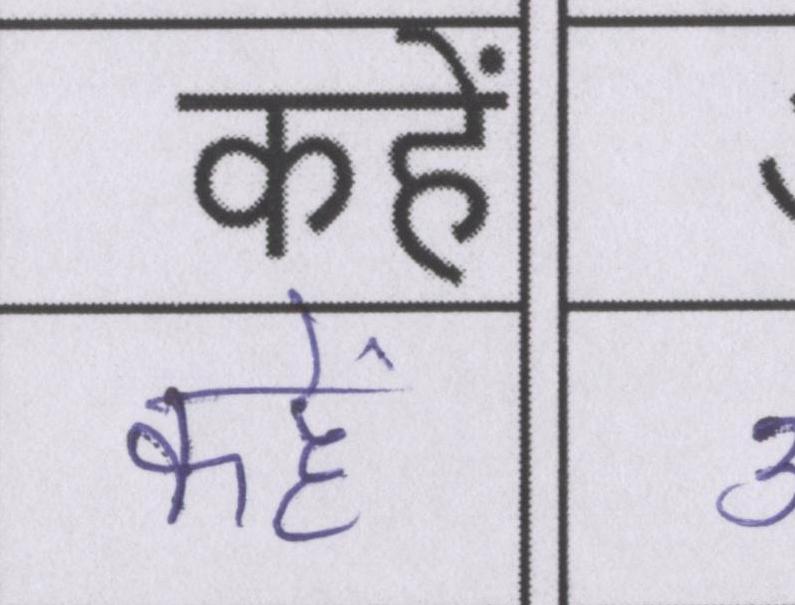 कहें
कहें